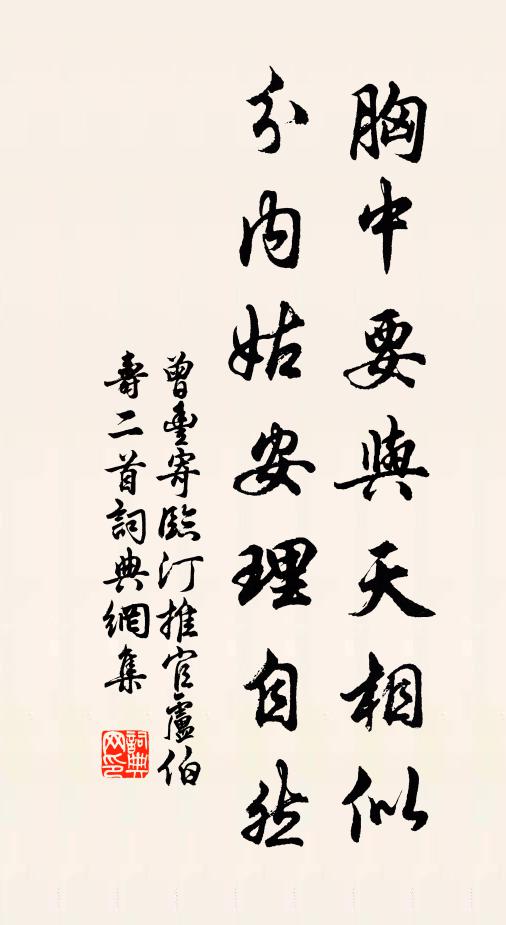 胸中要與天相似
分內姑安理自然
曾豐寄臨汀推官盧伯
壽二首詞典網集
詞典網印